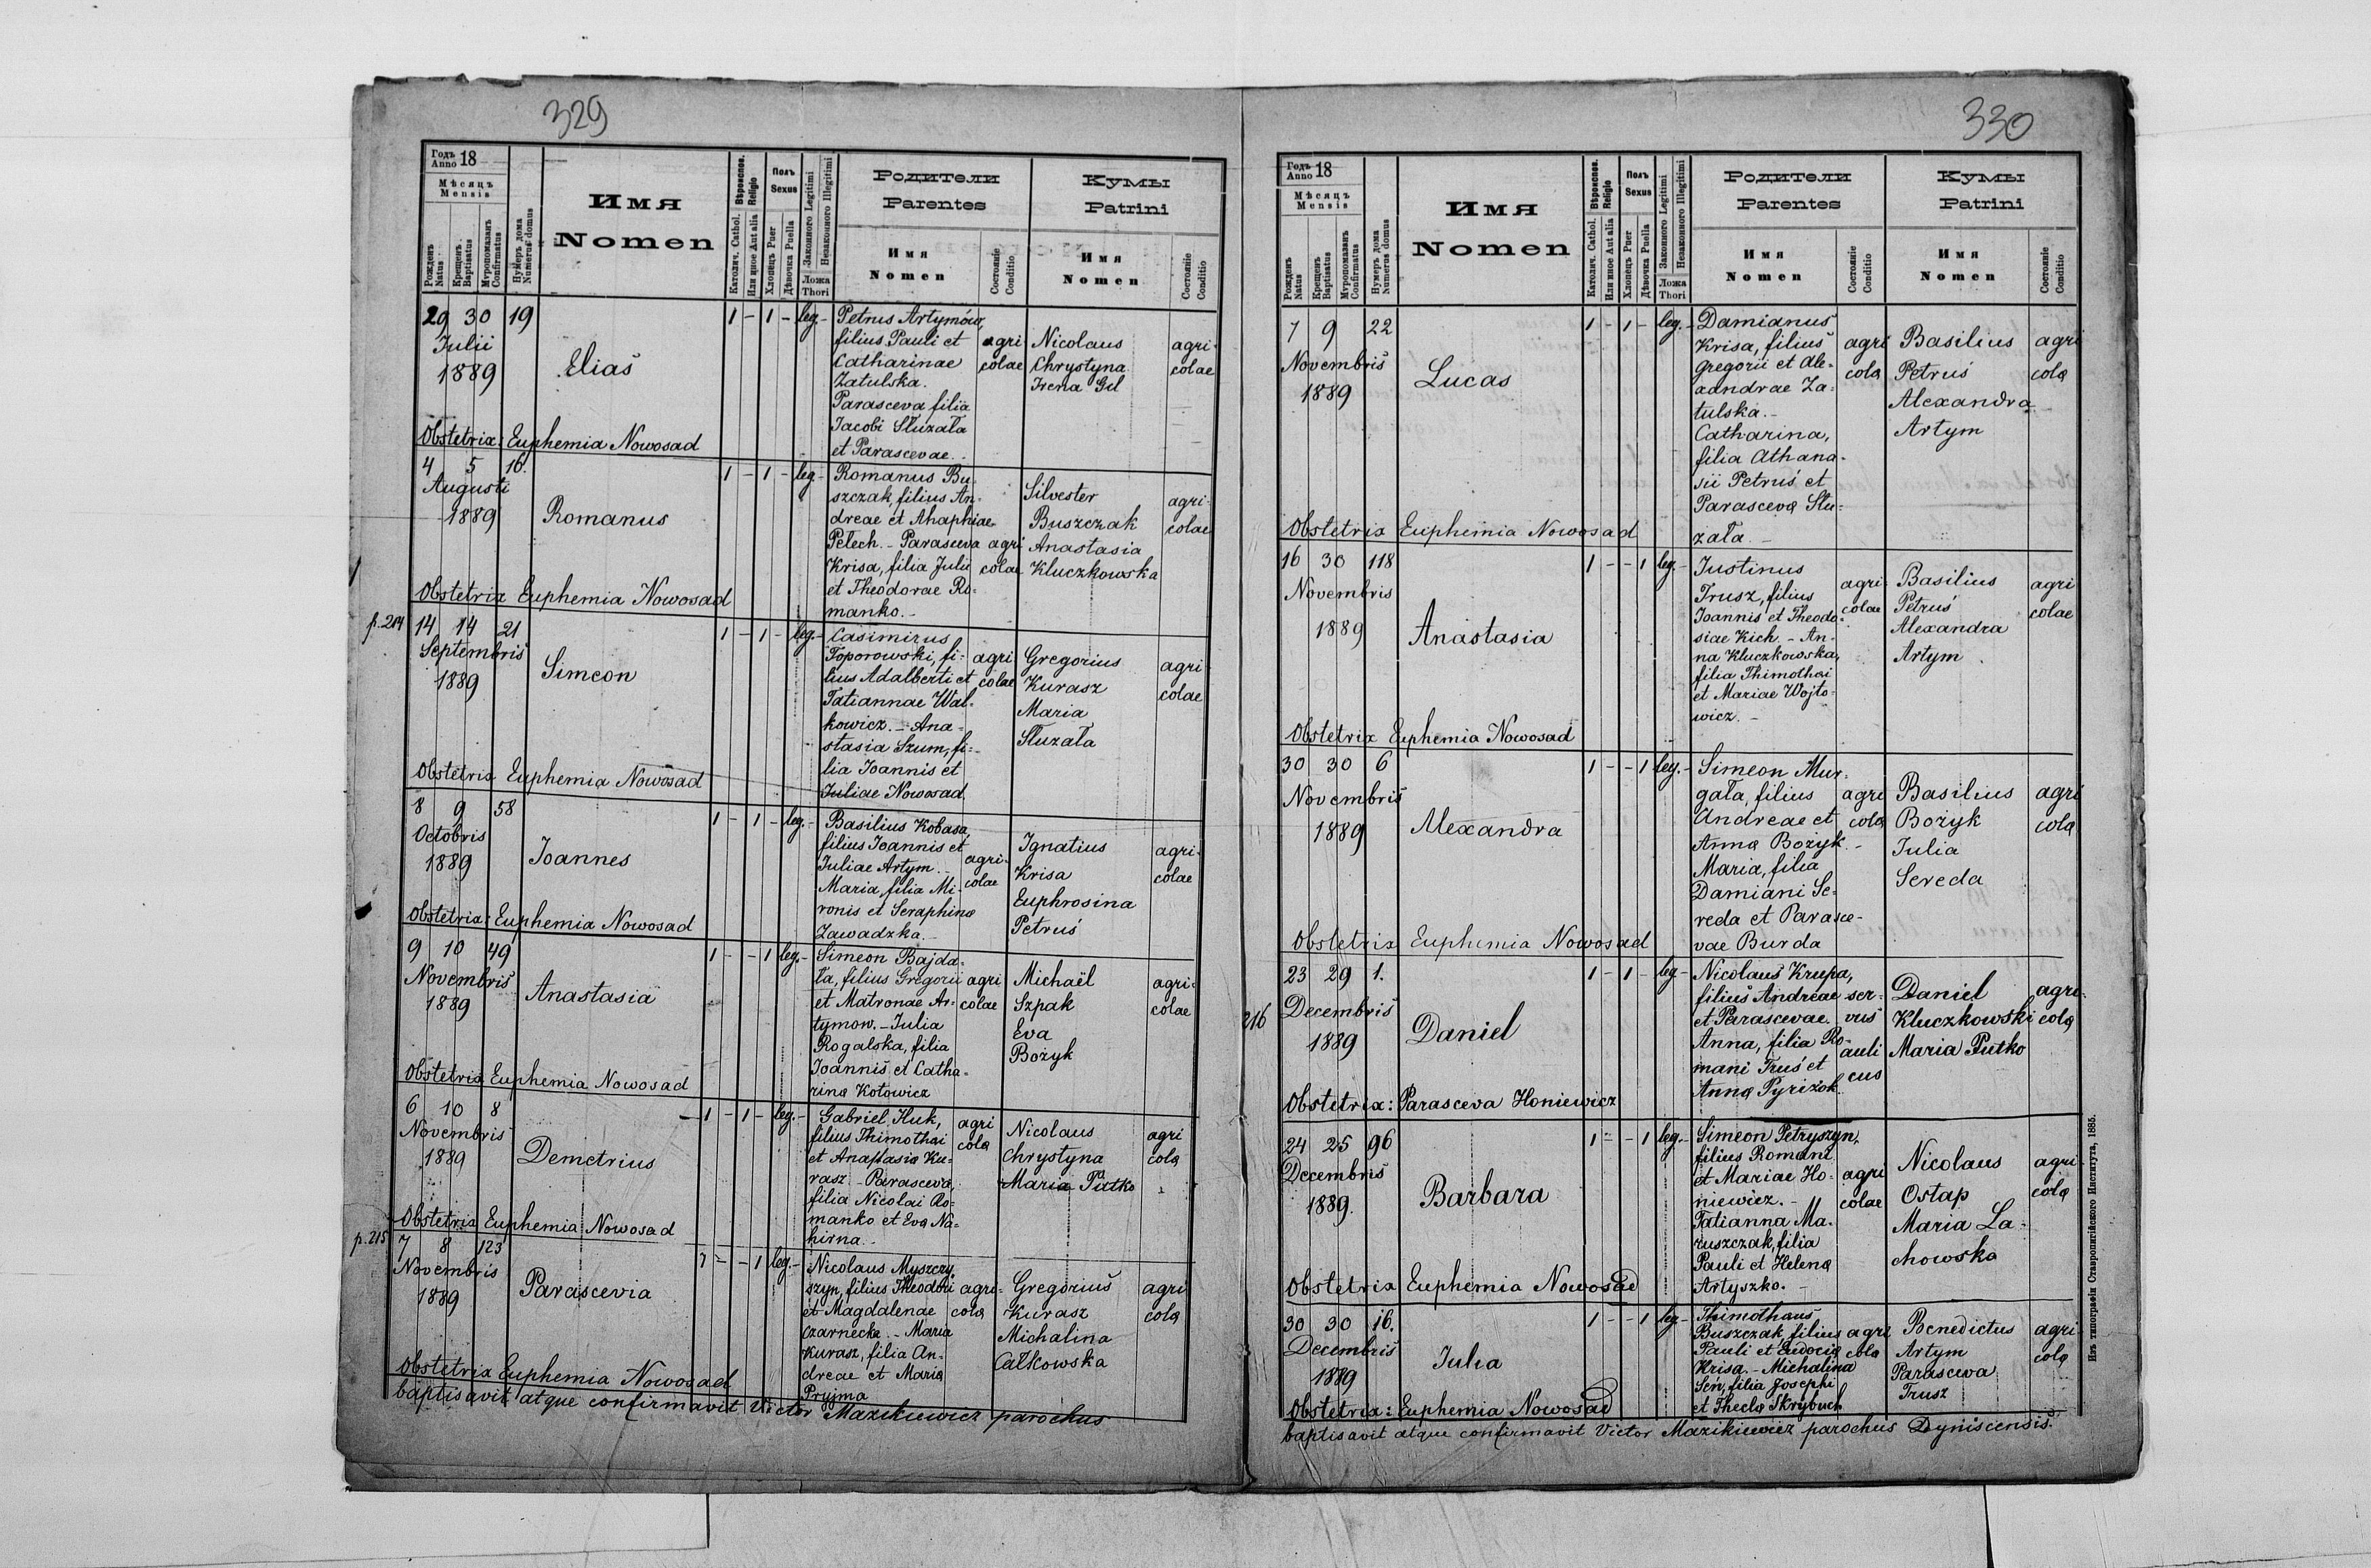 329
Годъ Anno 18
Мѣсяцъ Mensis
Рожденъ Natus
Крещенъ Baptisatus
Мѵропомазанъ Confirmatus
Нумеръ дома Numerus domus
Имя
Nomen
Вѣроиспов. Religio
Католич. Cathol.
Или иное Aut alia
Полъ Sexus
Хлопецъ Puer
Дѣвочка Puella
Законного Legitimi
Незаконного Illegitimi
Ложа Thori
Родители
Parentes
Имя Nomen
Состояніе Conditio
Кумы
Patrini
Имя Nomen
Состояніе Conditio
29 30 19
Julii
1889
Elias
1 - 1 - leg.-
Petrus Artymów,
filius Pauli et
Catharinae
Zatulska.
Parasceva filia
Jacobi Słuzała
et Parascevae.
agri
colae
Nicolaus
Chrystyna
Irena Gil
agri-
colae
Obstetrix: Euphemia Nowosad
4 5 16.
Augusti
1889
Romanus
1 - 1 - leg.-
Romanus Bu-
szczak, filius An-
dreae et Ahaphiae
Pelech. - Parasceva
Krisa, filia Julii
et Theodorae Ro-
manko.-
agri
colae
Silvester
Buszczak
Anastasia
Kluczkowska
agri-
colae
Obstetrix Euphemia Nowosad
p. 214
14 14 21
Septembris
1889
Simeon
1 - 1 - leg.-
Casimirus
Toporowski, fi-
lius Adalberti et
Tatiannae Wal-
kowicz. - Ana-
stasia Szum, fi-
lia Joannis et
Juliae Nowosad.
agri
colae
Gregorius
Kurasz
Maria
Słuzała
agri
colae
Obstetrix Euphemia Nowosad
8 9 58
Octobris
1889
Joannes
1 - 1 - leg.-
Basilius Kobasa,
filius Joannis et
Juliae Artym.-
Maria, filia Mi-
ronis et Seraphina
Zawadzka.-
agri-
colae
Ignatius
Krisa
Euphrosina
Petruś
agri-
colae
Obstetrix: Euphemia Nowosad
9 10 49
Novembris
1889
Anastasia
1 - - 1 leg.-
Simeon Bajda-
ła, filius Gregorii
et Matronae Ar-
tymow. - Julia
Rogalska, filia
Joannis et Catha-
rina Kotowicz
agri
colae
Michaël
Szpak
Eva
Bożyk
agri-
colae
Obstetrix Euphemia Nowosad
6 10 8
Novembris
1889
Demetrius
- 1 - 1 - leg.-
Gabriel Huk,
filius Thimothai
et Anastasia Ku-
rasz - Parasceva
filia Nicolai Ro-
manko et Eva Na-
hirna.-
agri
cola
Nicolaus
Chrystyna
Maria Putko
agri
cola
Obstetrix Euphemia Nowosad
p. 215
7 8 123
Novembris
1889
Parascevia
1 - - 1 leg.-
Nicolaus Myszczy
szyn, filius Theodori
et Magdalenae
Czarnecka. - Maria
Kurasz, filia An-
dreae et Maria
Pryjma
agri-
cola
Gregorius
Kurasz
Michalina
Całkowska
agri
cola
Obstetrix Euphemia Nowosad
baptisavit atque confirmavit Victor Mazikiewicz parochus
330
Годъ Anno 18
Мѣсяцъ Mensis
Рожденъ Natus
Крещенъ Baptisatus
Мѵропомазанъ Confirmatus
Нумеръ дома Numerus domus
Имя
Nomen
Вѣроиспов. Religio
Католич. Cathol.
Или иное Aut alia
Полъ Sexus
Хлопецъ Puer
Дѣвочка Puella
Законного Legitimi
Незаконного Illegitimi
Ложа Thori
Родители
Parentes
Имя Nomen
Состояніе Conditio
Кумы
Patrini
Имя Nomen
Состояніе Conditio
7 9 22
Novembris
1889
Lucas
1 - 1 - leg.-
Damianus
Krisa, filius
Gregorii et Ale-
xandrae Za-
tulska.-
Catharina,
filia Athana-
sii Petruś et
Parasceva Słu-
zała.-
agri
cola
Basilius
Petruś
Alexandra
Artym
agri
cola
Obstetrix Euphemia Nowosad
16 30 118
Novembris
1889
Anastasia
1 - - 1 leg.-
Justinus
Trusz, filius
Joannis et Theodo-
siae Kich. - An-
na Kluczkowska,
filia Thimothai
et Mariae Wojto-
wicz.-
agri-
colae
Basilius
Petruś
Alexandra
Artym
agri
colae
Obstetrix Euphemia Nowosad
30 30 6
Novembris
1889
Alexandra
1 - - 1 leg.-
Simeon Mur-
gała, filius
Andreae et
Anna Bożyk.-
Maria, filia
Damiani Se-
reda et Parasce-
vae Burda
agri
cola
Basilius
Bożyk
Julia
Sereda
agri
cola
Obstetrix Euphemia Nowosad
216
23 29 1.
Decembris
1889
Daniel
1 - 1 - leg.-
Nicolaus Krupa,
filius Andreae
et Parascevae.
Anna, filia Ro-
mani Truś et
Anna Pyrizok.
ser-
vus
auli
cus
Daniel
Kluczkowski
Maria Putko
agri-
cola
Obstetrix: Parasceva Honiewicz
24 25 96
Decembris
1889.
Barbara
1 - - 1 leg.-
Simeon Petryszyn,
filius Romani
et Mariae Ho-
niewicz.-
Tatianna Ma-
ruszczak, filia
Pauli et Helena
Artyszko.-
agri
colae
Nicolaus
Ostap
Maria La-
chowska
agri-
cola
Obstetrix Euphemia Nowosad
30 30 16.
Decembris
1889
Julia
1 - - 1 leg-
Thimothaus
Buszczak filius
Pauli et Eudocia
Krisa. - Michalina
Seń, filia Josephi
et Thecla Skrybuch
agri
cola
Benedictus
Artym
Parasceva
Trusz
agri
cola
Obstetrix: Euphemia Nowosad
baptisavit atque confirmavit Victor Mazikiewicz parochus Dyniscensis.
Изъ типографіи Ставропигійского Института, 1885.